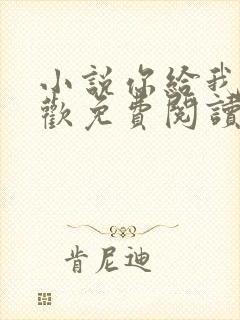 小說你給我
歡免費閱讀
肯尼迪